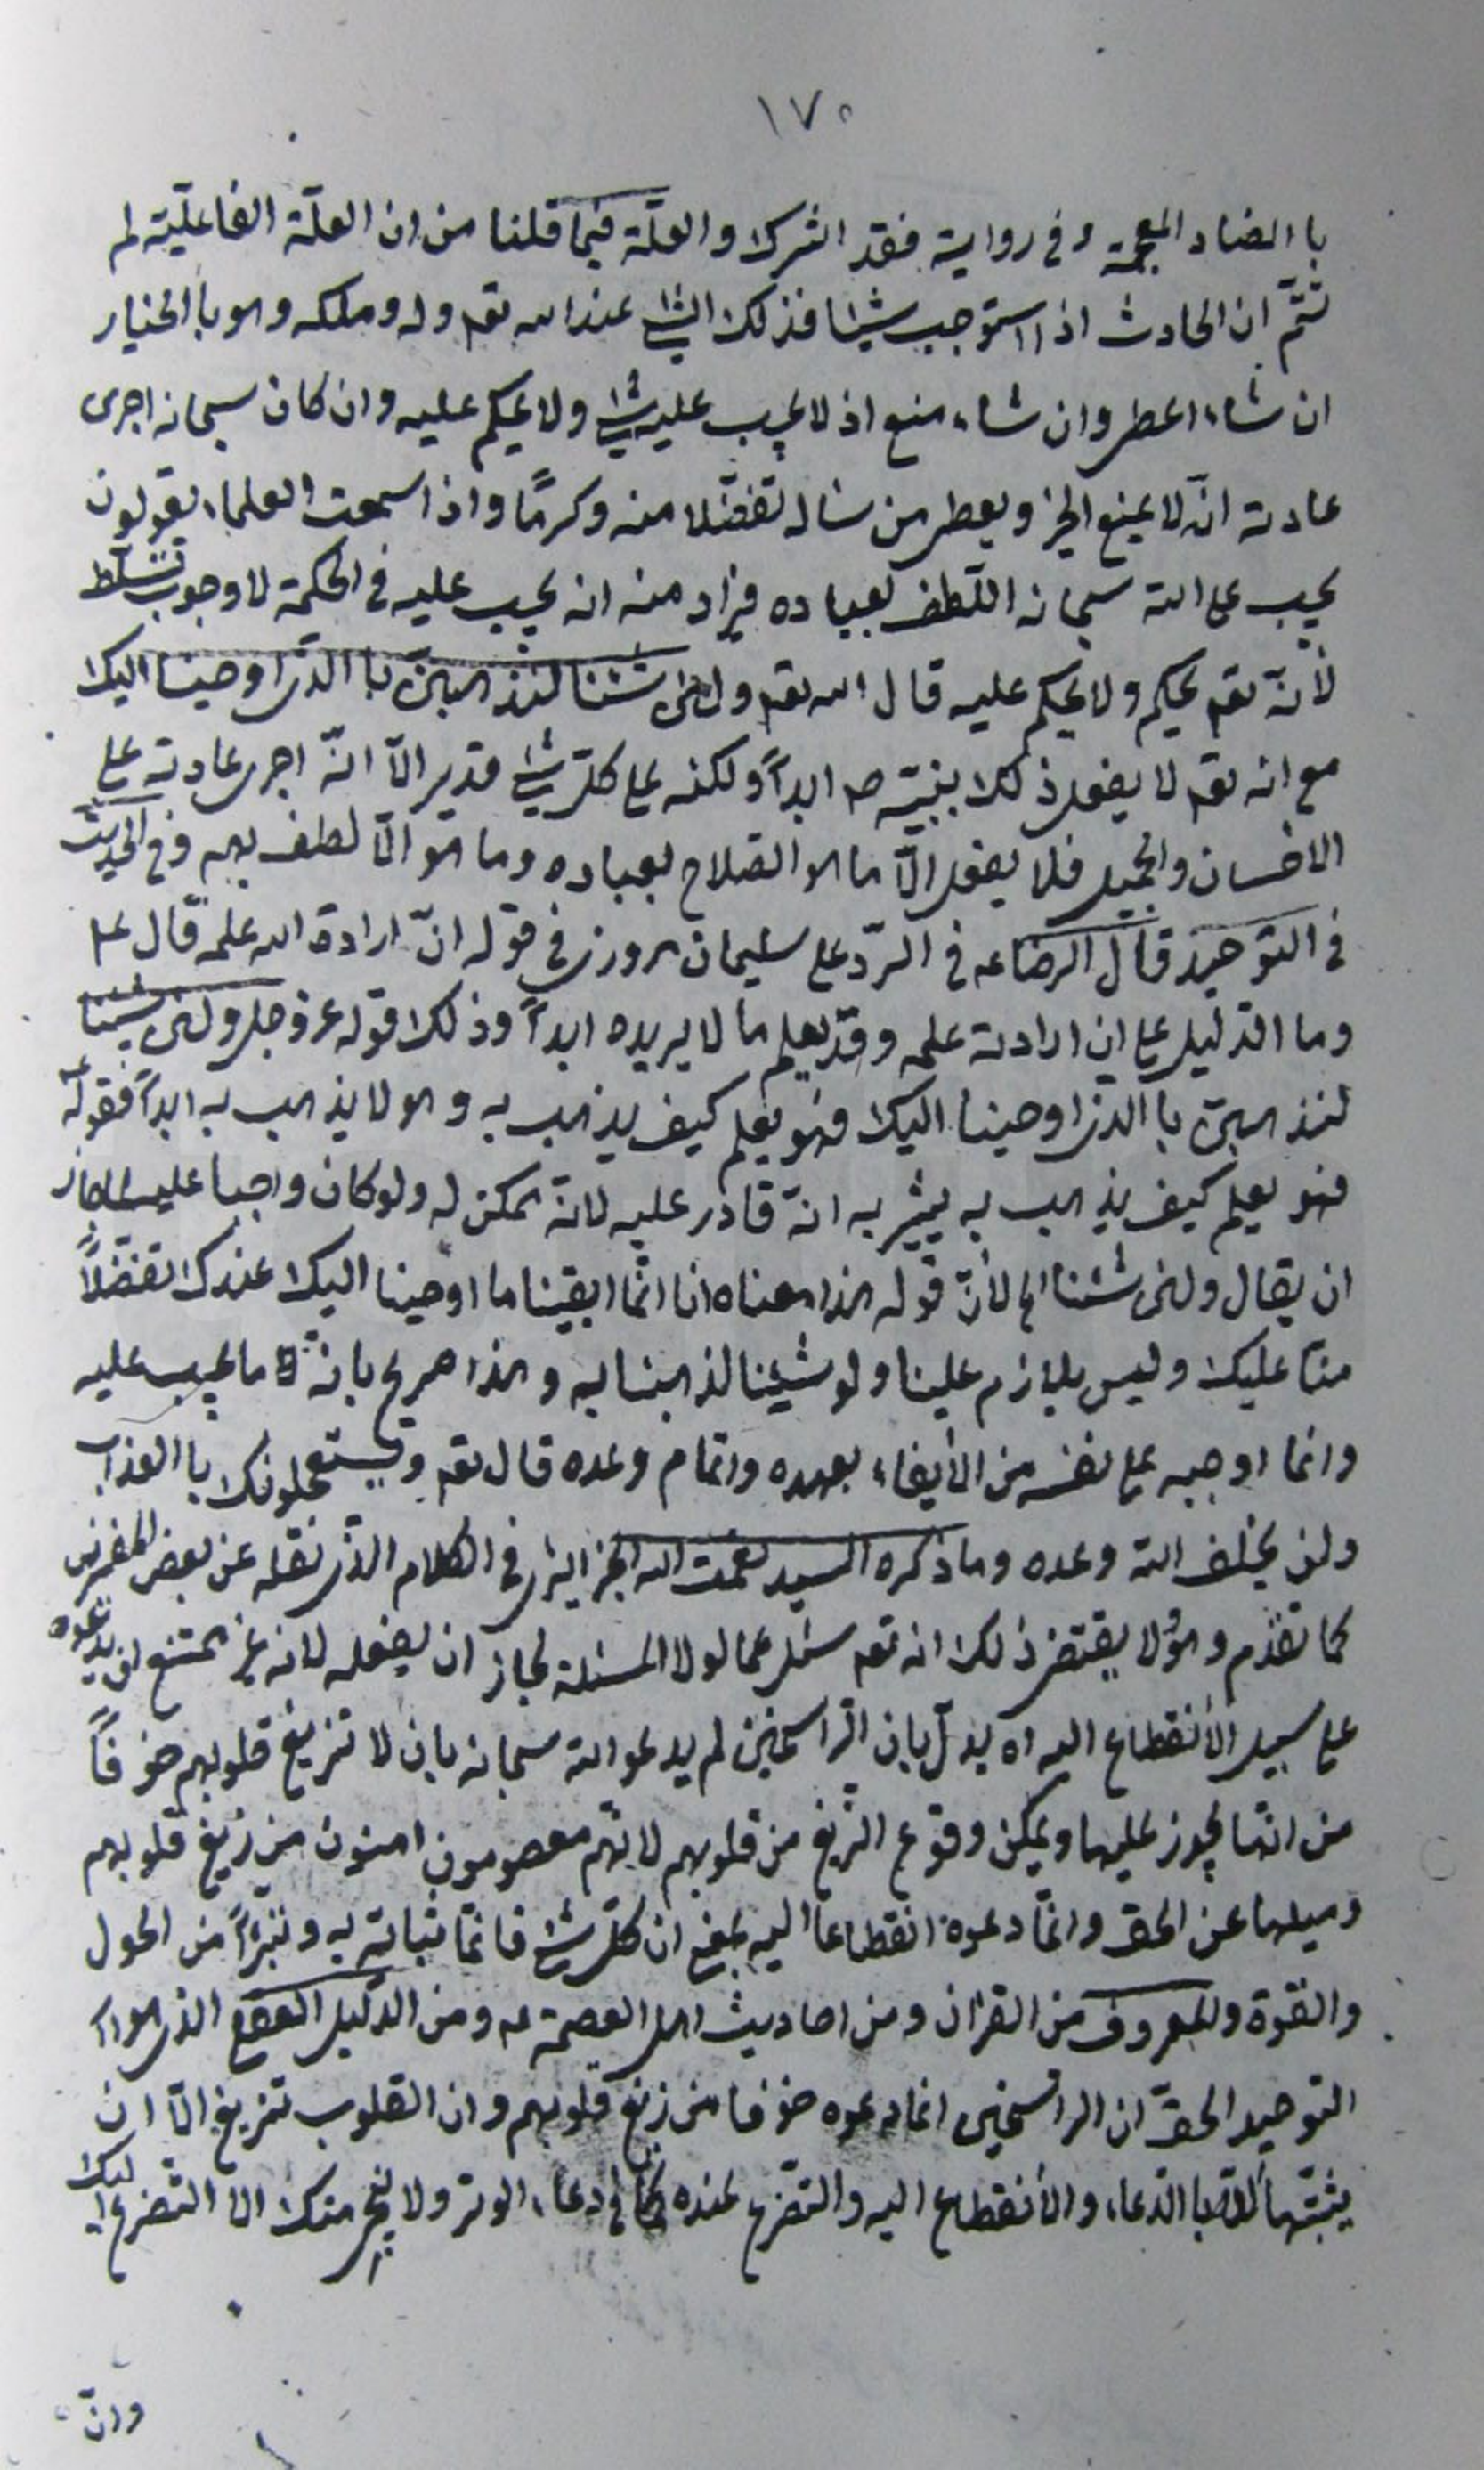 ١٧٥
با الضاد المعجمة وفى رواية فقد اشرك والعلّة فيما قلنا من ان العلّة الفاعليّة لم
تتمّ ان الحادث اذا استوجب شيئا فذلك الشئ عند الله تعم وله وملكه وهو با الخيار
ان شاء اعطى وان شاء منع اذ لا يجب عليه شئ ولا يحكم عليه وان كان سبحانه اجرى
عادته انّه لا يمنع الخير ويعطى من سأله تفضّلا منه وكرمًا واذا سمعت العلماء يقولون
يجب على الله سبحانه اللّطف لعباده فيراد منه انه يجب عليه فى الحكمة لا وجوب تسلّط
لأنّه تعم يحكم ولا يحكم عليه قال الله تعم ولئن شئنا لنذهبنّ با الذى اوحينا اليك
مع انه تعم لا يفعل ذلك بنبيّه ص ابداً ولكنه على كلّ شئ قدير الّا انّه اجرى عادته على
الاحسان والجميل فلا يفعل الّا ما هو الصلاح بعباده وما هو الّا لطف بهم وفى الحديث
فى التوحيد قال الرضا عه فى الرّد على سليمان مروزى فى قوله انّ ارادة الله علمه قال عم
وما الدليل على ان ارادته علمه وقد يعلم ما لا يريده ابداً وذلك قوله عزوجل ولئن شئنا
لنذهبنّ با الذى اوحينا اليك فهو يعلم كيف يذهب به وهو لا يذهب به ابداً فقوله عم
فهو يعلم كيف يذهب به يشير به انّه قادر عليه لانّه ممكن له ولو كان واجبا عليه لما جاز
ان يقال ولئن شئنا الخ لأنّ قوله هذا معناه انا انّما ابقينا ما اوحينا اليك عندك تفضّلاً
منّا عليك وليس بلازم علينا ولو شئنا لذهبنا به وهذا صريح بانّه ما يجب عليه
وانما اوجبه على نفسه من الأيفاء بعهده واتمام وعده قال تعم ويستعجلونك با العذاب
ولن يخلف الله وعده وما ذكره السيد نعمت الله الجزايرى فى الكلام الذى نقله عن بعض المفسرين
كما تقدم وهو لا يقتضى ذلك انه تعم سئل عما لولا المسئلة لجاز ان يفعله لانه غير ممتنع ان يدعوه
على سبيل الأنقطاع اليه اه يدلّ بان الراسخين لم يدعوا الله سبحانه بان لا تزيغ قلوبهم خوفاً
من انّها يجوز عليها ويمكن وقوع الزيغ من قلوبهم لانّهم معصومون امنون من زيغ قلوبهم
وميلها عن الحق وانّما دعوه انقطاعا اليه بمعنى ان كلّ شئ فانّما ثباته به وتبرّأ من الحول
والقوة والمعروف من القران ومن احاديث اهل العصمة عه ومن الدليل العقلى الذى هو
التوحيد الحقّ ان الراسخين انما دعوه خوفا من زيغ قلوبهم وان القلوب تزيغ الّا ان
يثبّتها با الدّعاء والأنقطاع اليه والتضرع عنده كما فى دعاء الوتر ولا ينجى منك الا التضرع اليك
وانّ